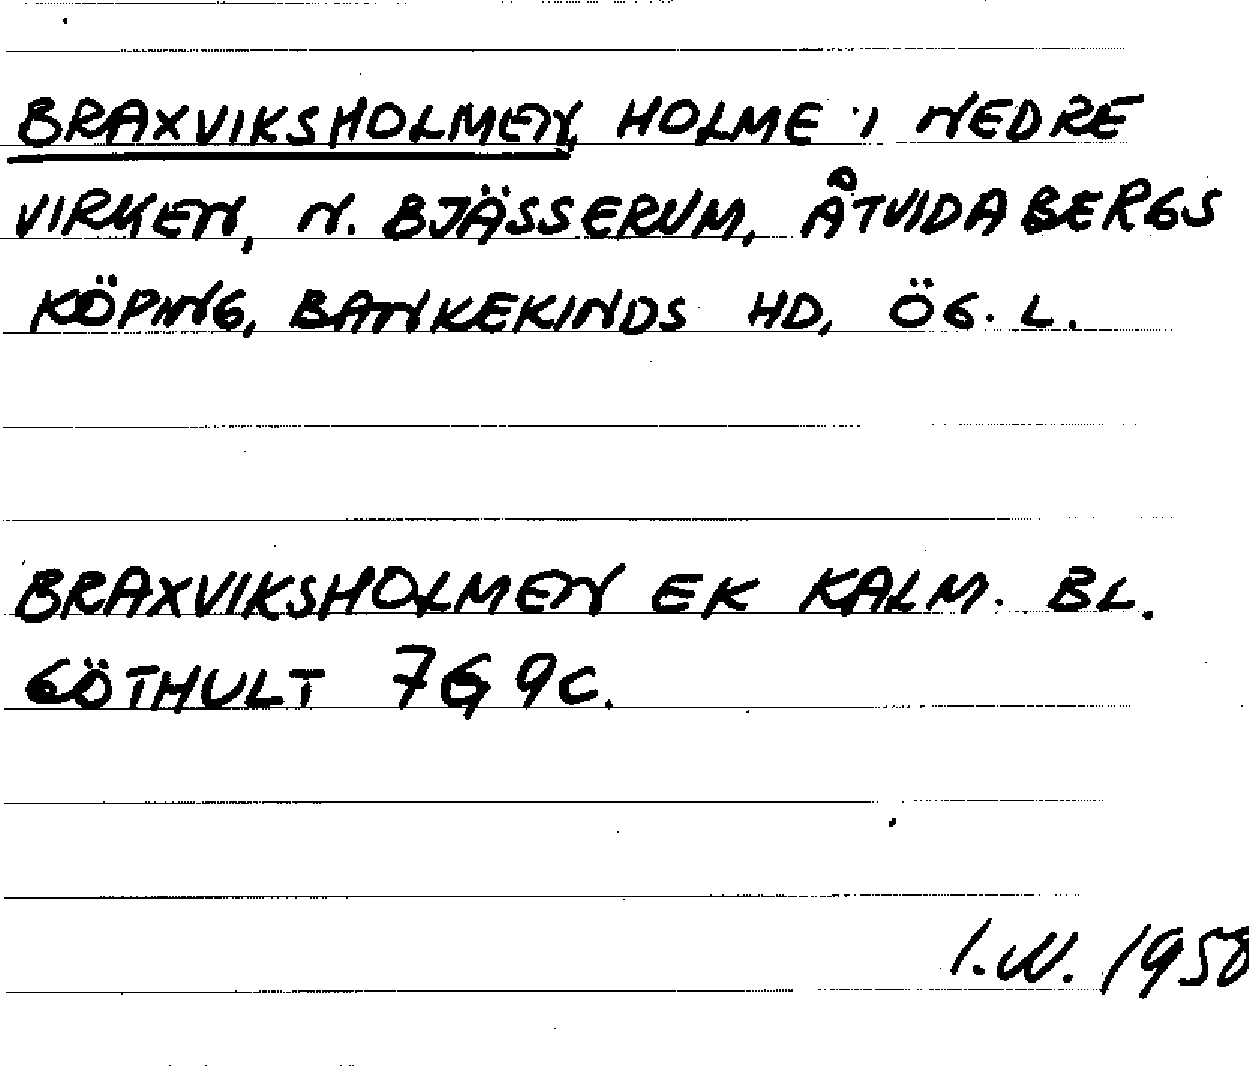 BRAXVIKSHOLMEN, HOLME I NEDRE
VIRKEN, N. BJÄSSERUM, ÅTVIDABERGS
KÖPING, BANKEKINDS HD, ÖG. L.
BRAXVIKSHOLMEN EK KALM. BL.
GÖTHULT 7G 9C.
I.N. 1958